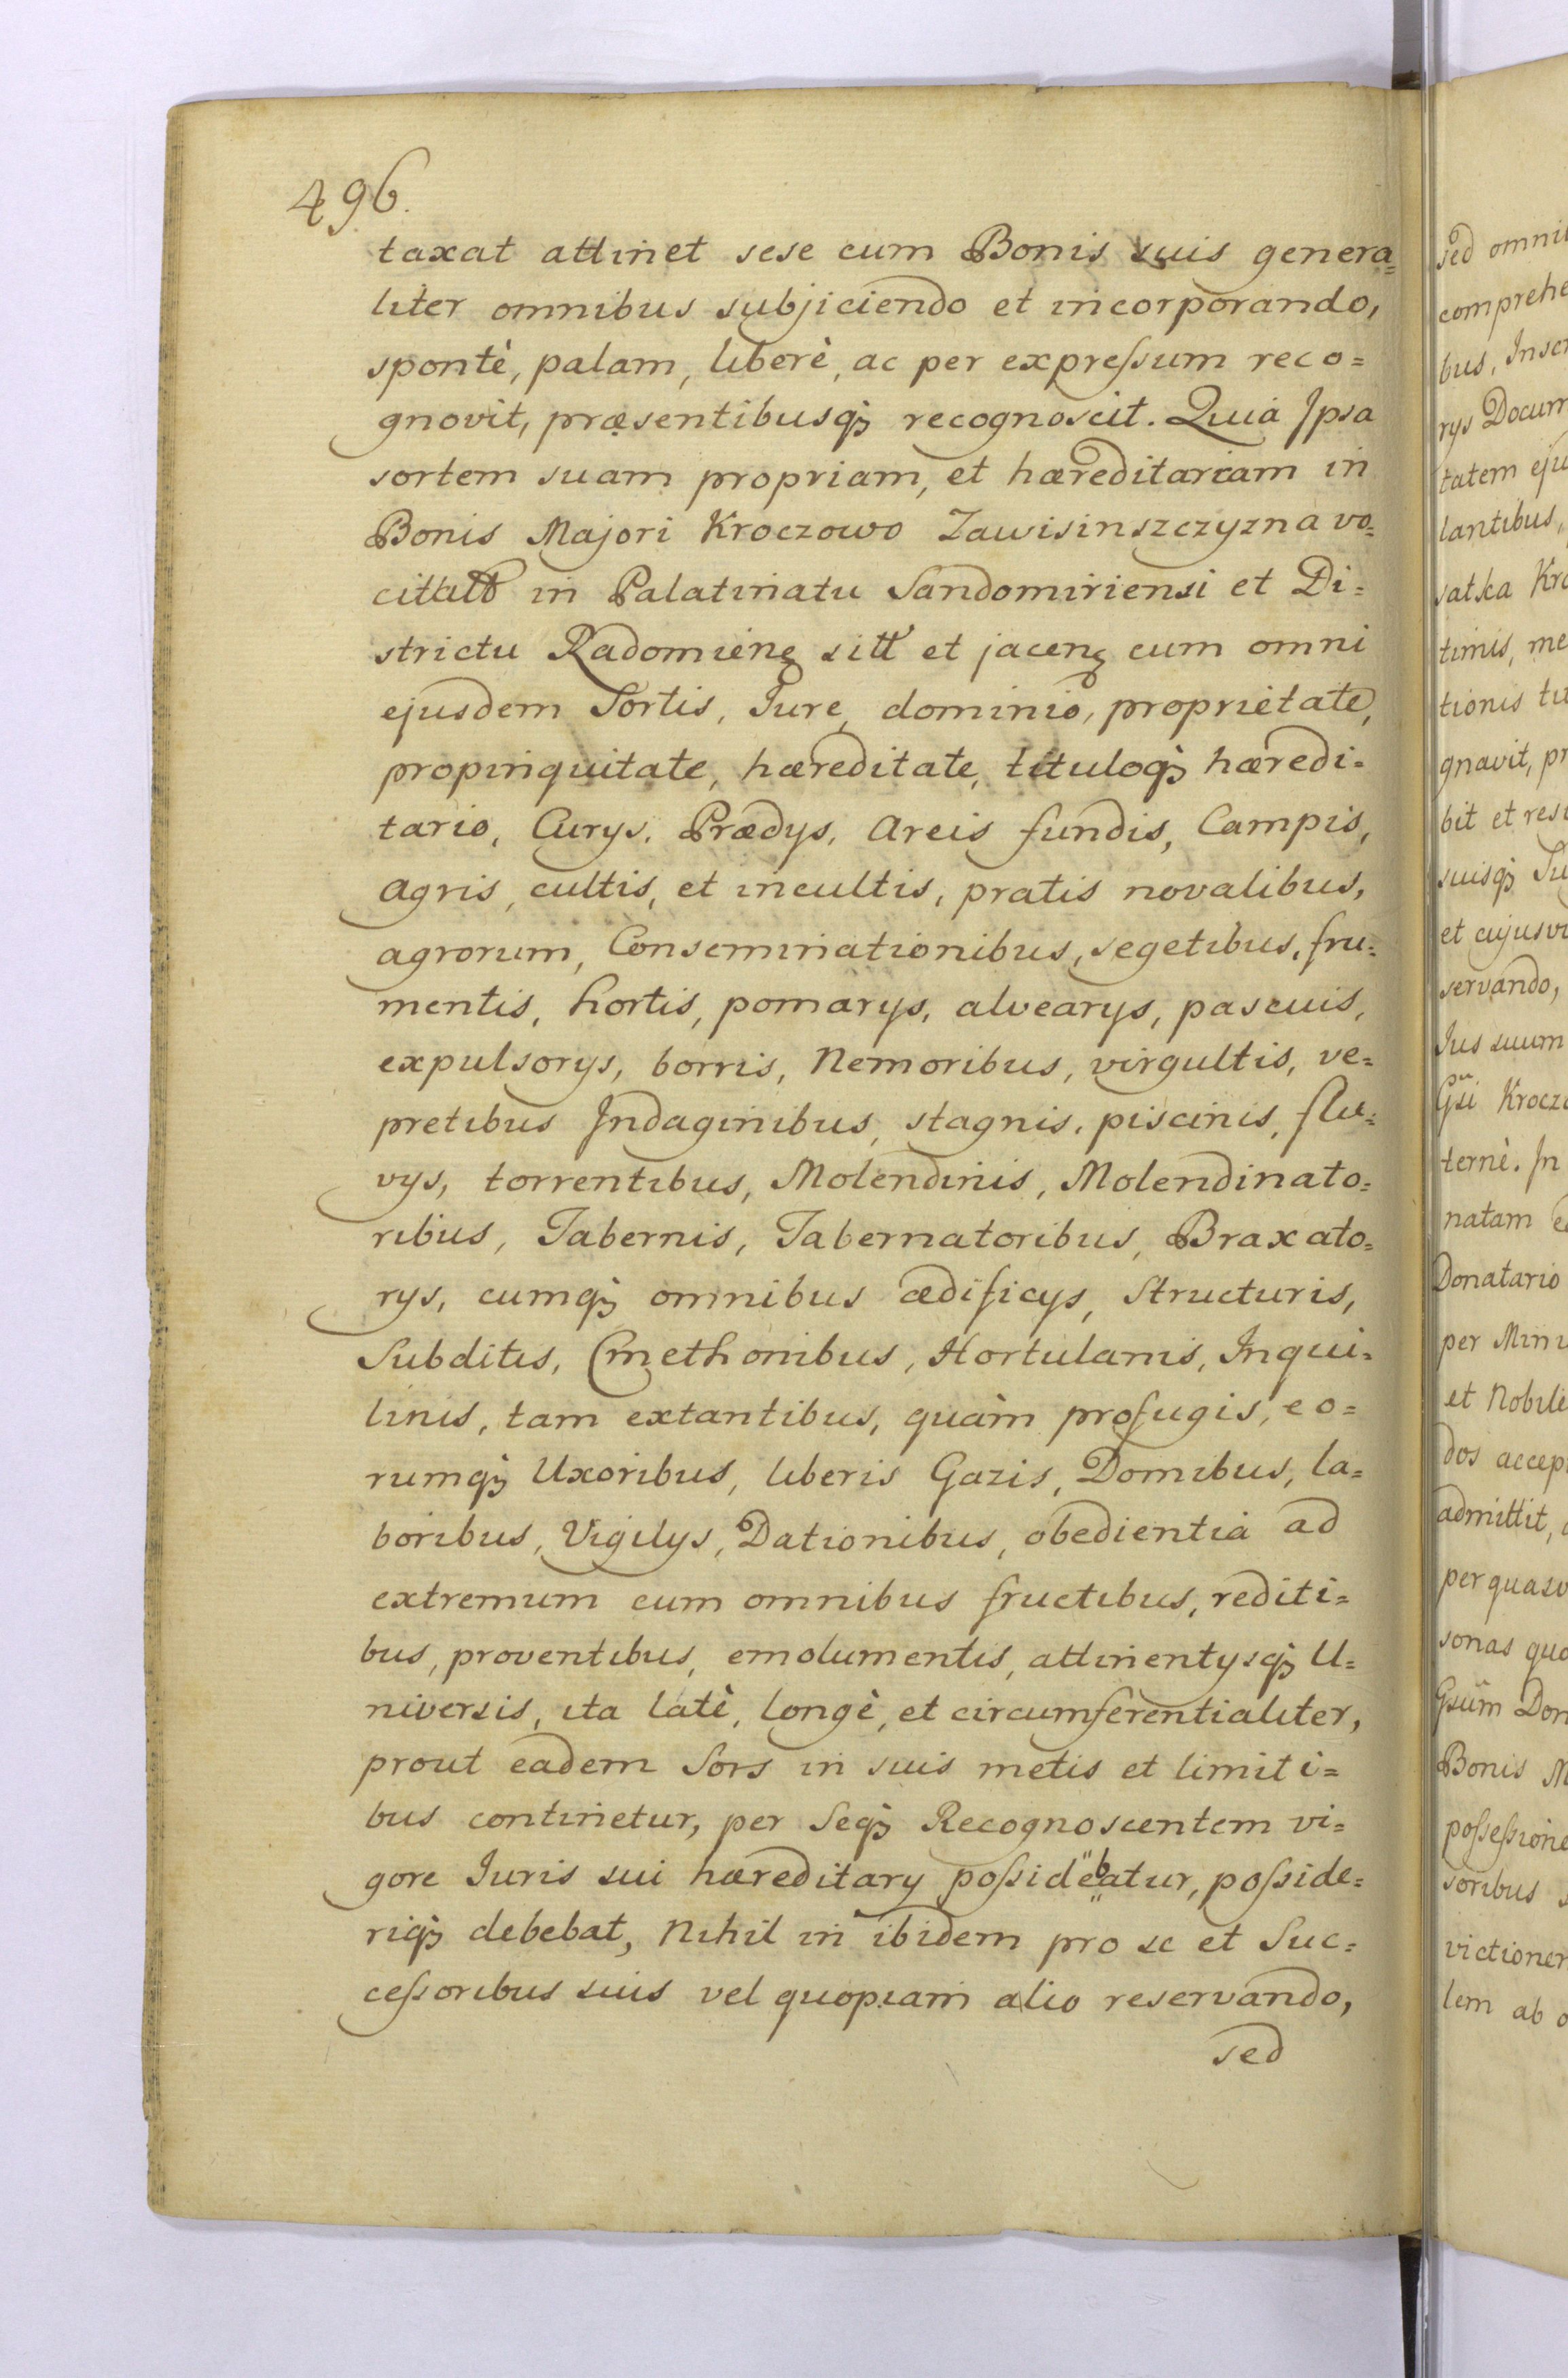 496.
taxat attinet sese cum Bonis suis genera=
liter omnibus subjiciendo et incorporando,
spontè, palam, liberè, ac per expreſsum reco=
gnovit, præsentibusqꝫ recognoscit. Quia Ipsa
sortem suam propriam, et hæreditariam in
Bonis Majori Kroczowo Zawisinszczyzna vo=
citatt in Palatinatu Sandomiriensi et Di=
strictu Radomienꝫ sitt et jacenꝫ cum omni
ejusdem Sortis, Iure, dominio, proprietate,
propinquitate, hæreditate, tituloqꝫ hæredi=
tario, Curys, Prædys, Areis fundis, Campis,
Agris, cultis, et incultis, pratis novalibus,
agrorum, Conseminationibus, segetibus, fru=
mentis, hortis, pomarys, alvearys, pascuis,
expulsorys, borris, Nemoribus, virgultis, ve=
pretibus Indaginibus, stagnis, piscinis, flu=
vys, torrentibus, Molendinis, Molendinato=
ribus, Tabernis, Tabernatoribus, Braxato=
rys, cumqꝫ omnibus ædificys, Structuris,
Subditis, Cmethonibus, Hortulanis, Inqui=
linis, tam extantibus, quàm profugis, eo=
rumqꝫ Uxoribus, liberis Gazis, Domibus, la=
boribus, Vigilys, Dationibus, obedientia ad
extremum cum omnibus fructibus, rediti=
bus, proventibus, emolumentis, attinentysqꝫ U=
niversis, ita latè, longè, et circumferentialiter,
prout eadem Sors in suis metis et limiti=
bus continetur, per Seqꝫ Recognoscentem vi=
gore Iuris sui hæreditary poſsidebatur, poſside=
riqꝫ debebat, Nihil in ibidem pro se et Suc=
ceſsoribus suis vel quopiam alio reservando,
sed
sed omni
comprehe
bus, Inscr
rys Docum
tatem eju
lantibus,
satka Kro
timis, me
tionis tu
gnavit, pr
bit et resi
suisqꝫ Su
et cujusvi
servando,
Ius suum
Gsi Krocz
ternè. In
natam
Donatario
per Mini
et Nobile
dos accep
admittit,
per quasv
sonas quo
Gsum Don
Bonis M
poſseſsione
soribus
victionem
lem ab o